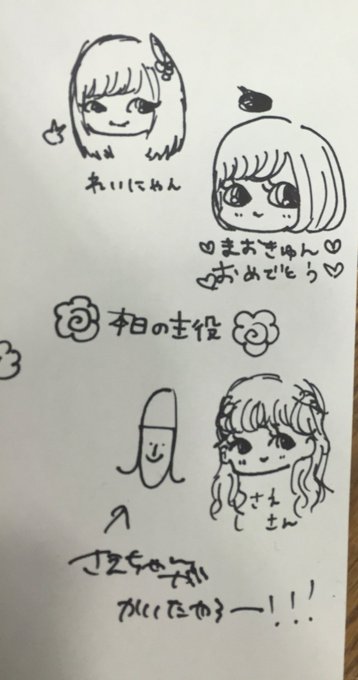 れいにゃん
♡まおきゅん♡
♡おめでとう♡
本日の主役
さえ
しさん
さえちゃんが
かいたやるー!!!